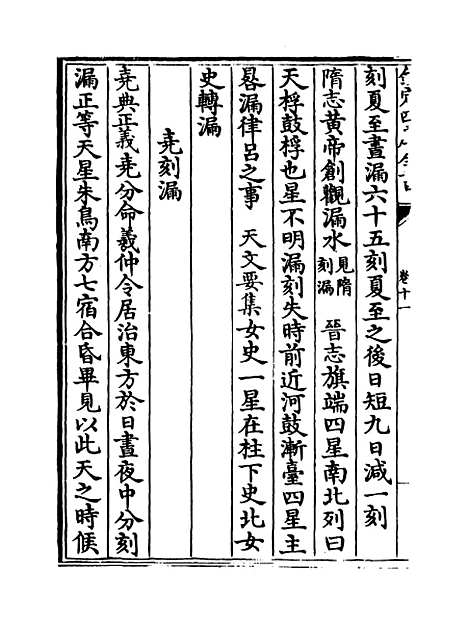 刻夏至晝漏六十五刻夏至之後日短九日減一刻
隋志黄帝創觀漏水見隋刻漏　晉志旗端四星南北列曰
天桴鼓桴也星不明漏刻失時前近河鼓漸臺四星主
晷漏律呂之事　天文要集女史一星在柱下史北女
史轉漏
堯刻漏
堯典正義堯分命羲仲令居治東方於日晝夜中分刻
漏正等天星朱鳥南方七宿合昏畢見以此天之時候
卷十一